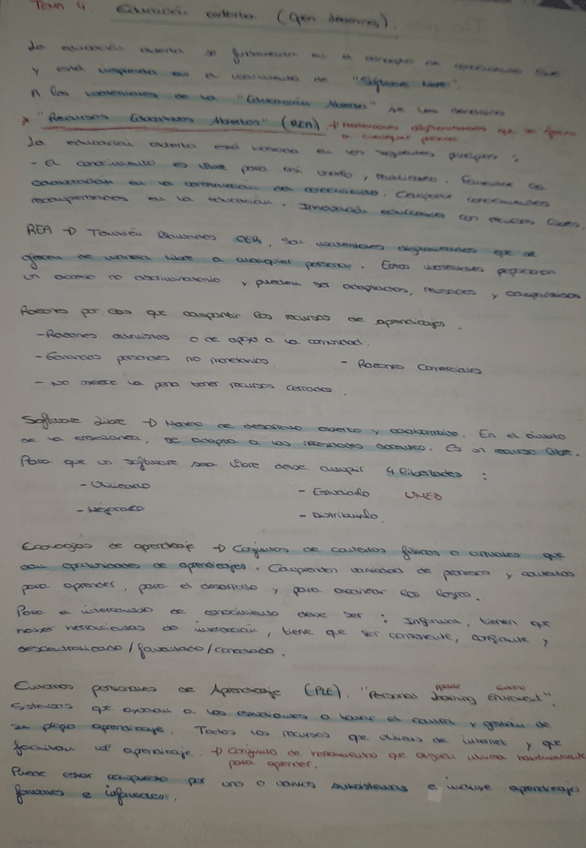 Tema 4 Educación abierta (Open learning).
La educación abierta se fundamenta en el concepto de conocimiento libre
y está inspirada en el movimiento de "Software libre".
A los materiales de la "Educación Abierta" se les denomina
* "Recursos Educativos Abiertos" (REA) → materiales digitalizados que se
a cualquier persona
La educación abierta está basada en los siguientes principios :
- El conocimiento es libre para ser usado, y reutilizado. Fomentar la
colaboración en la construcción del conocimiento. Compartir conocimientos
en la educación. Innovación con recursos libres.
REA → También llamados OER, son materiales digitalizados que se
de manera libre a cualquier persona. Estos materiales
un acceso no discriminatorio y pueden ser adaptados, y compartidos
Razones por las que compartir los recursos de aprendizaje.
- Razones altruistas o de apoyo a la comunidad.
- Ganancias personales no monetarias. - Razones Comerciales
- No merece la pena tener recursos cerrados.
Software libre → Modelo de desarrollo abierto y colaborativo. En el ámbito
de la enseñanza, se adapta a las necesidades docentes. Es un recurso libre.
Para que un software sea libre debe cumplir 4 libertades :
- Utilizarlo - Estudiarlo UMED
- Mejorarlo - Distribuirlo.
Ecologías de aprendizaje → Conjuntos de contextos físicos o virtuales que
dan oportunidades de aprendizajes. Comprenden variedad de procesos y contextos
para aprender, para el desarrollo y para alcanzar ese logro.
Para el intercambio de conocimiento debe ser : Informal, tienen que
haber herramientas de interacción, tiene que ser constante, confiante y
descentralizado /
Entornos personales de Aprendizaje (PLE). "Personal learning Enviroment".
Sistemas que ayudan a los estudiantes a tomar el control y gestión de
su propio aprendizaje. Todos los recursos que utilizas de internet y que
facilitan el aprendizaje. → Conjunto de herramientas que alguien utiliza habitualmente
para aprender.
Puede estar compuesto por uno o varios subsistemas e incluye aprendizajes
formales e informales.